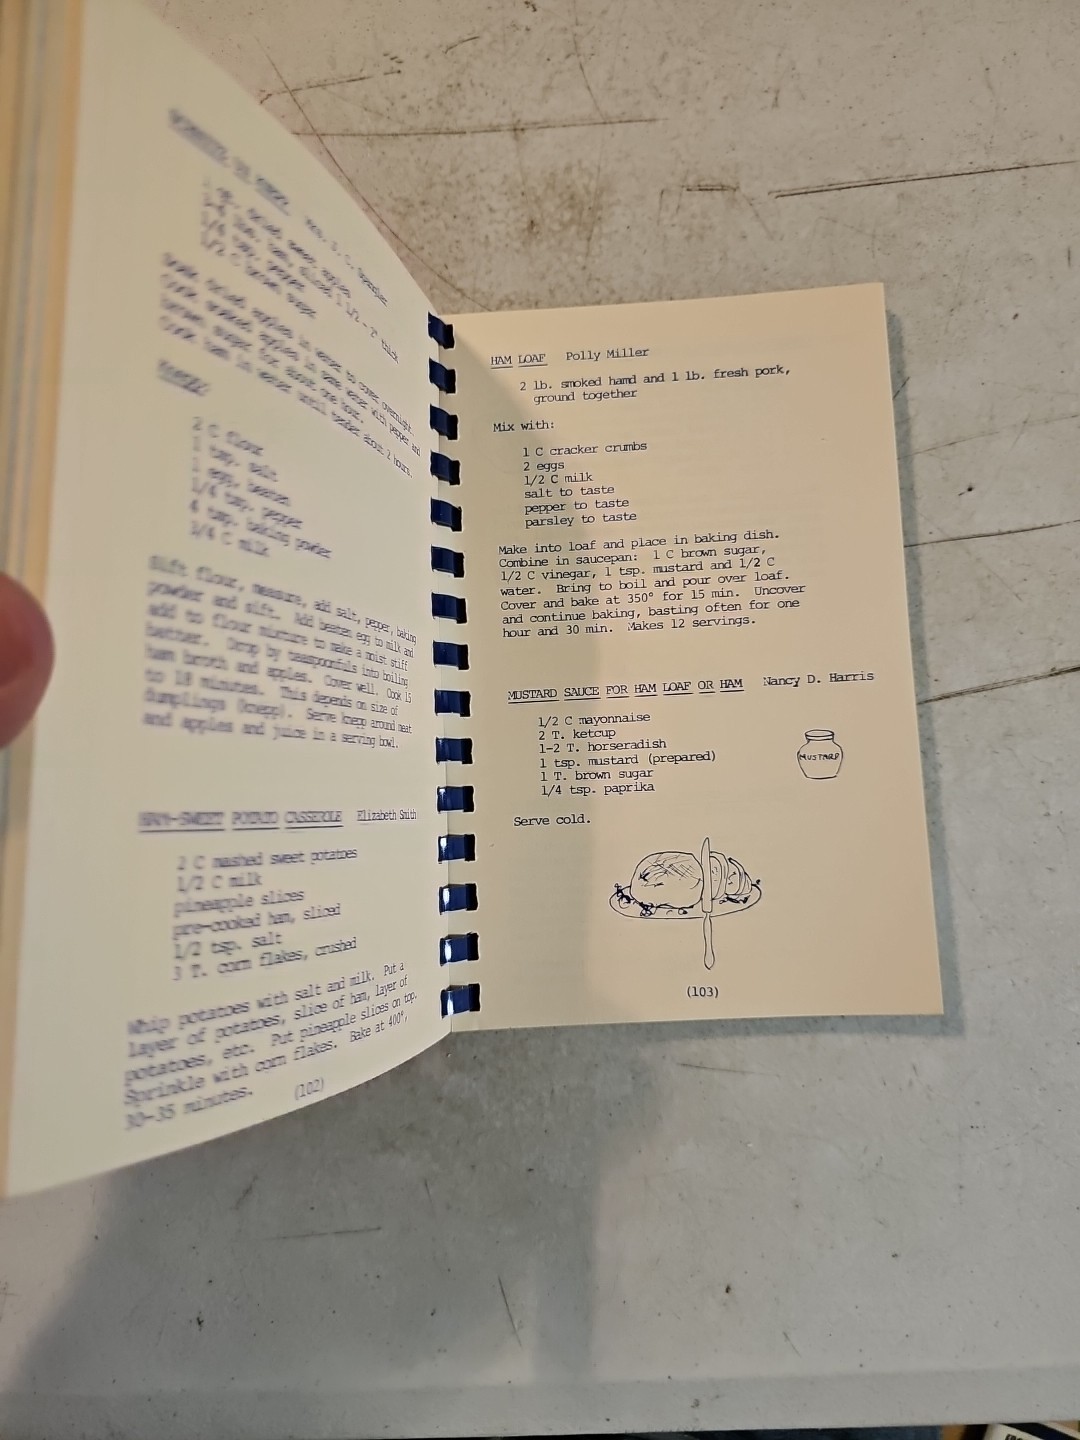 1 qt. dried sweet apples
1/4 tsp. pepper
1/2 C brown sugar
Soak dried apples in water to cover overnight.
Cook soaked apples in same water with pepper and
brown sugar for about one hour.
Cook ham in water until tender about 2 hours.
2 C flour
1 tsp. salt
1 egg, beaten
1/4 tsp. pepper
4 tsp. baking powder
3/4 C milk
Sift flour, measure, add salt, pepper, baking
powder and sift. Add beaten egg to milk and
add to flour mixture to make a moist stiff
batter. Drop by teaspoonfuls into boiling
ham broth and apples. Cover well. Cook 15
to 18 minutes. This depends on size of
dumplings (knepp). Serve knepp around meat
and apples and juice in a serving bowl.
HAM-SWEET POTATO CASSEROLE Elizabeth Smith
2 C mashed sweet potatoes
1/2 C milk
pineapple slices
pre-cooked ham, sliced
1/2 tsp. salt
3 T. corn flakes, crushed
Whip potatoes with salt and milk. Put a
layer of potatoes, slice of ham, layer of
potatoes, etc. Put pineapple slices on top.
Sprinkle with corn flakes. Bake at 400°,
30-35 minutes.
(102)
HAM LOAF Polly Miller
2 lb. smoked hamd and 1 lb. fresh pork,
ground together
Mix with:
1 C cracker crumbs
2 eggs
1/2 C milk
salt to taste
pepper to taste
parsley to taste
Make into loaf and place in baking dish.
Combine in saucepan: 1 C brown sugar,
1/2 C vinegar, 1 tsp. mustard and 1/2 C
water. Bring to boil and pour over loaf.
Cover and bake at 350° for 15 min. Uncover
and continue baking, basting often for one
hour and 30 min. Makes 12 servings.
MUSTARD SAUCE FOR HAM LOAF OR HAM Nancy D. Harris
1/2 C mayonnaise
2 T. ketcup
1-2 T. horseradish
1 tsp. mustard (prepared)
1 T. brown sugar
1/4 tsp. paprika
MUSTARD
Serve cold.
(103)